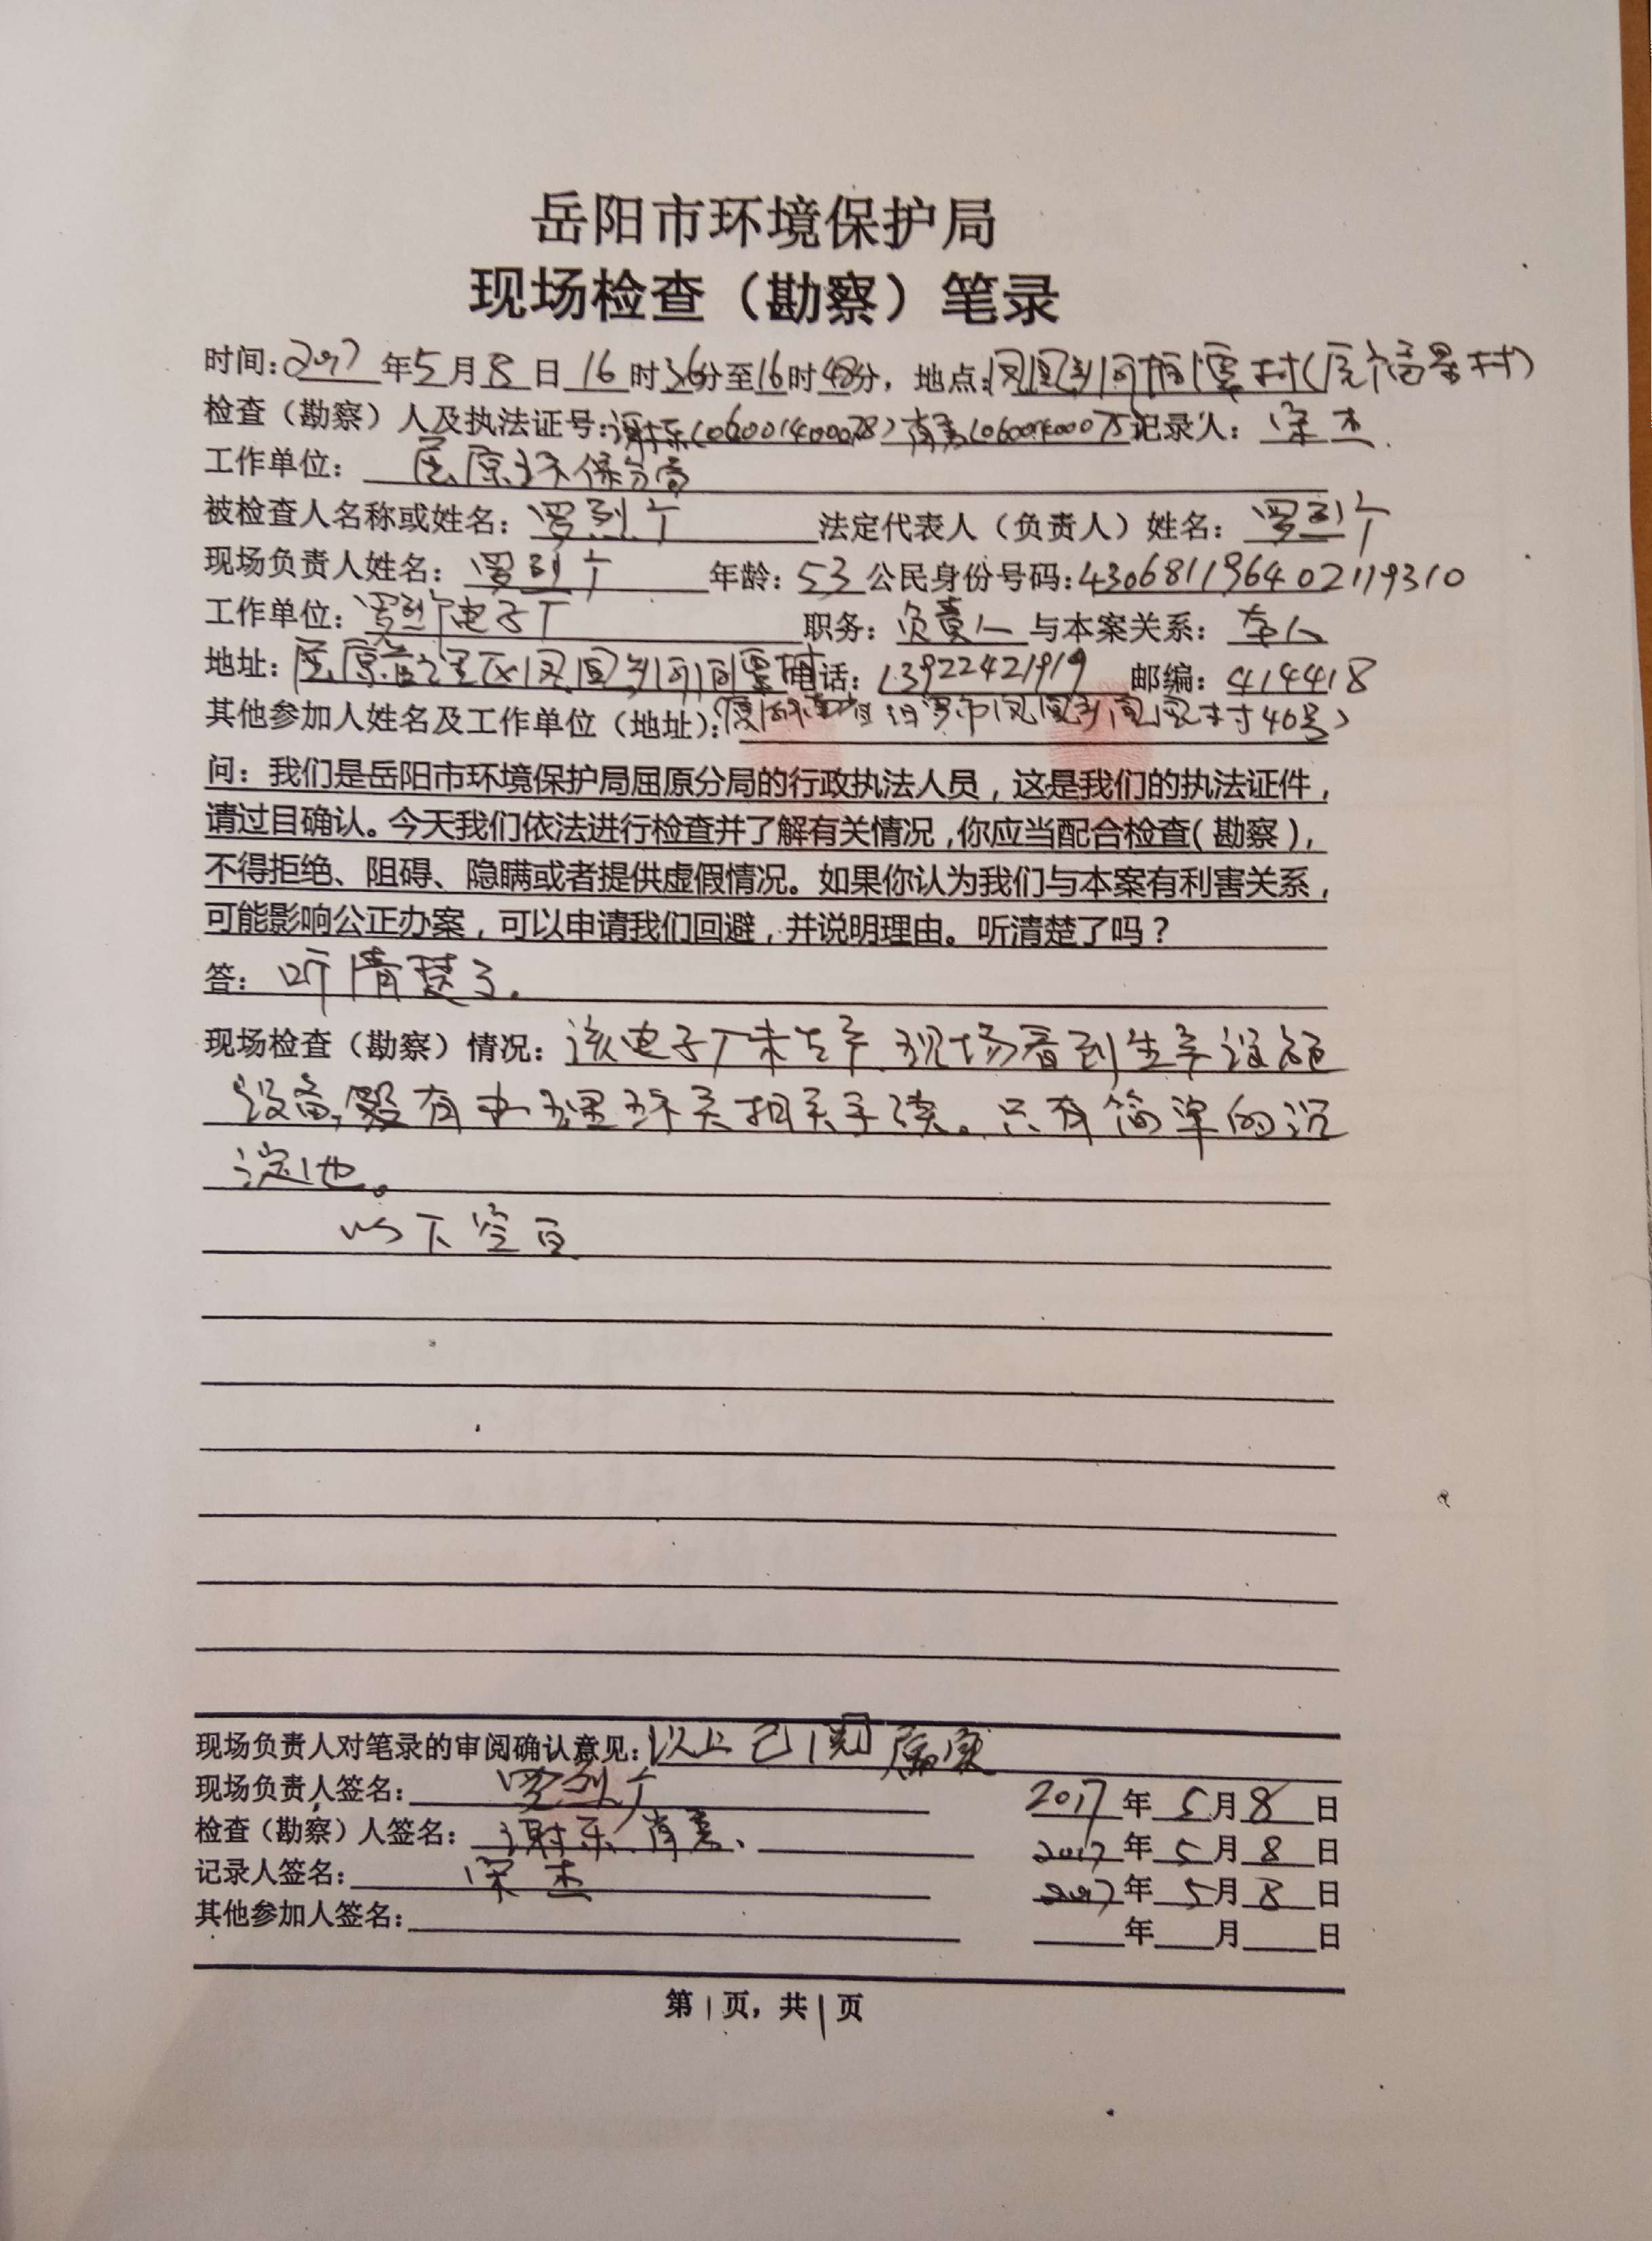 岳阳市环境保护局
现场检查（勘察）笔录
时间:2017年5月8日16时36分至16时48分，地点:凤凰乡河村(原福景村)
检查（勘察）人及执法证号:谢乐(06001400028) 肖 记录人: 宋杰.
工作单位: 屈原环保分局
被检查人名称或姓名: 罗烈 法定代表人（负责人）姓名: 罗烈
现场负责人姓名: 罗烈 年龄: 53 公民身份号码:430681196402119310
工作单位: 罗烈电子厂 职务: 负责人 与本案关系: 本人
地址: 屈原管理区凤凰乡河 电话: 13922421919 邮编: 414418
其他参加人姓名及工作单位（地址）: 汨罗市凤凰乡村46号)
问：我们是岳阳市环境保护局屈原分局的行政执法人员，这是我们的执法证件，
请过目确认。今天我们依法进行检查并了解有关情况,你应当配合检查(勘察),
不得拒绝、阻碍、隐瞒或者提供虚假情况。如果你认为我们与本案有利害关系，
可能影响公正办案，可以申请我们回避，并说明理由。听清楚了吗？
答: 听清楚了.
现场检查（勘察）情况: 该电子厂未生产.现场看到生产设施
设备,没有办理环保相关手续。只有简单的沉
淀池。
以下空白
现场负责人对笔录的审阅确认意见: 以上已阅 属实
现场负责人签名: 罗烈 2017年5月8日
检查（勘察）人签名: 谢乐 肖 2017年5月8日
记录人签名: 宋杰 2017年5月8日
其他参加人签名: 年 月 日
第1页，共1页